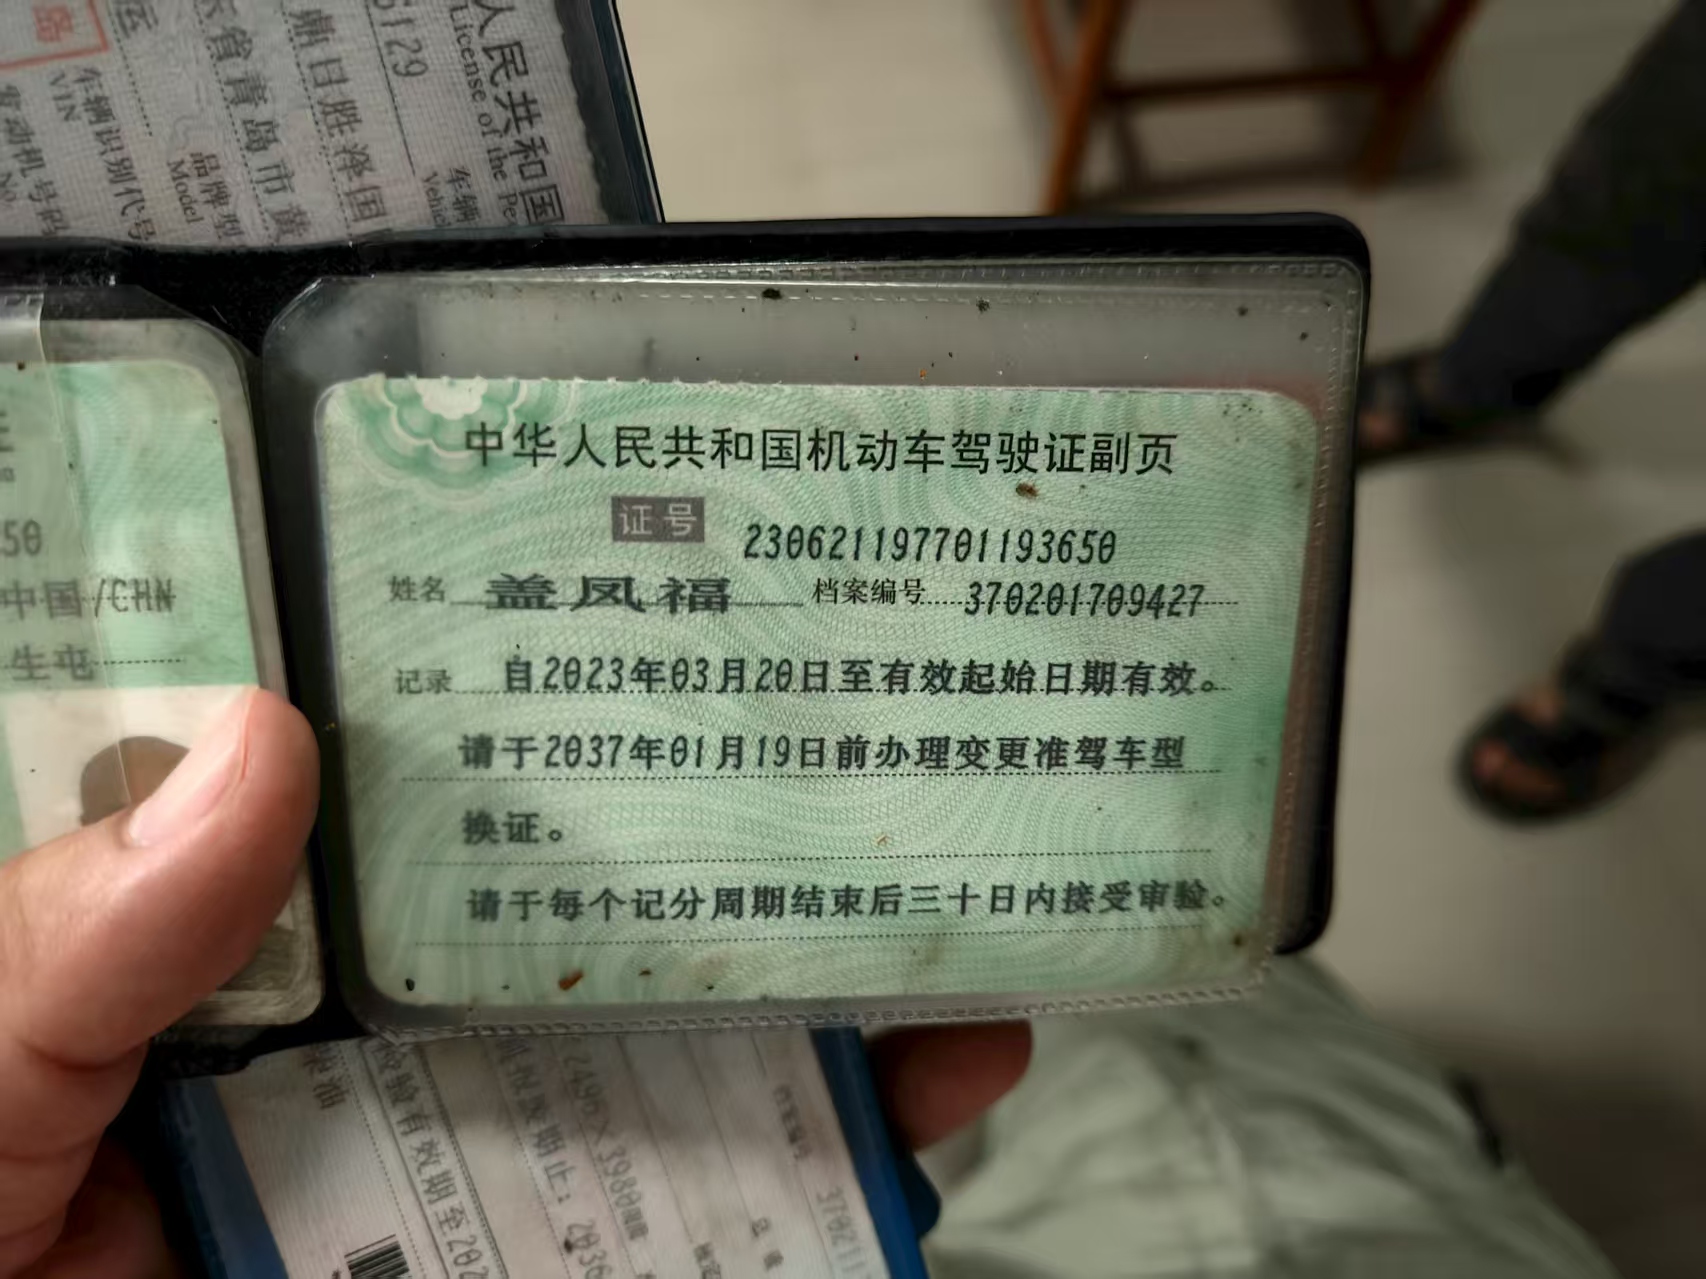 人民共和国
License of the Pe
6129
车辆
Vehic
鼎日胜泽国
东省青岛市黄
品牌型
Model
车辆识别代号
VIN
发动机号码
运
岛
50
中国/CHN
生屯
中华人民共和国机动车驾驶证副页
证号 230621197701193650
姓名 盖凤福 档案编号 370201709427
记录 自2023年03月20日至有效起始日期有效。
请于2037年01月19日前办理变更准驾车型
换证。
请于每个记分周期结束后三十日内接受审验。
检验有效期至202
期止：2036
2496×3980
370211